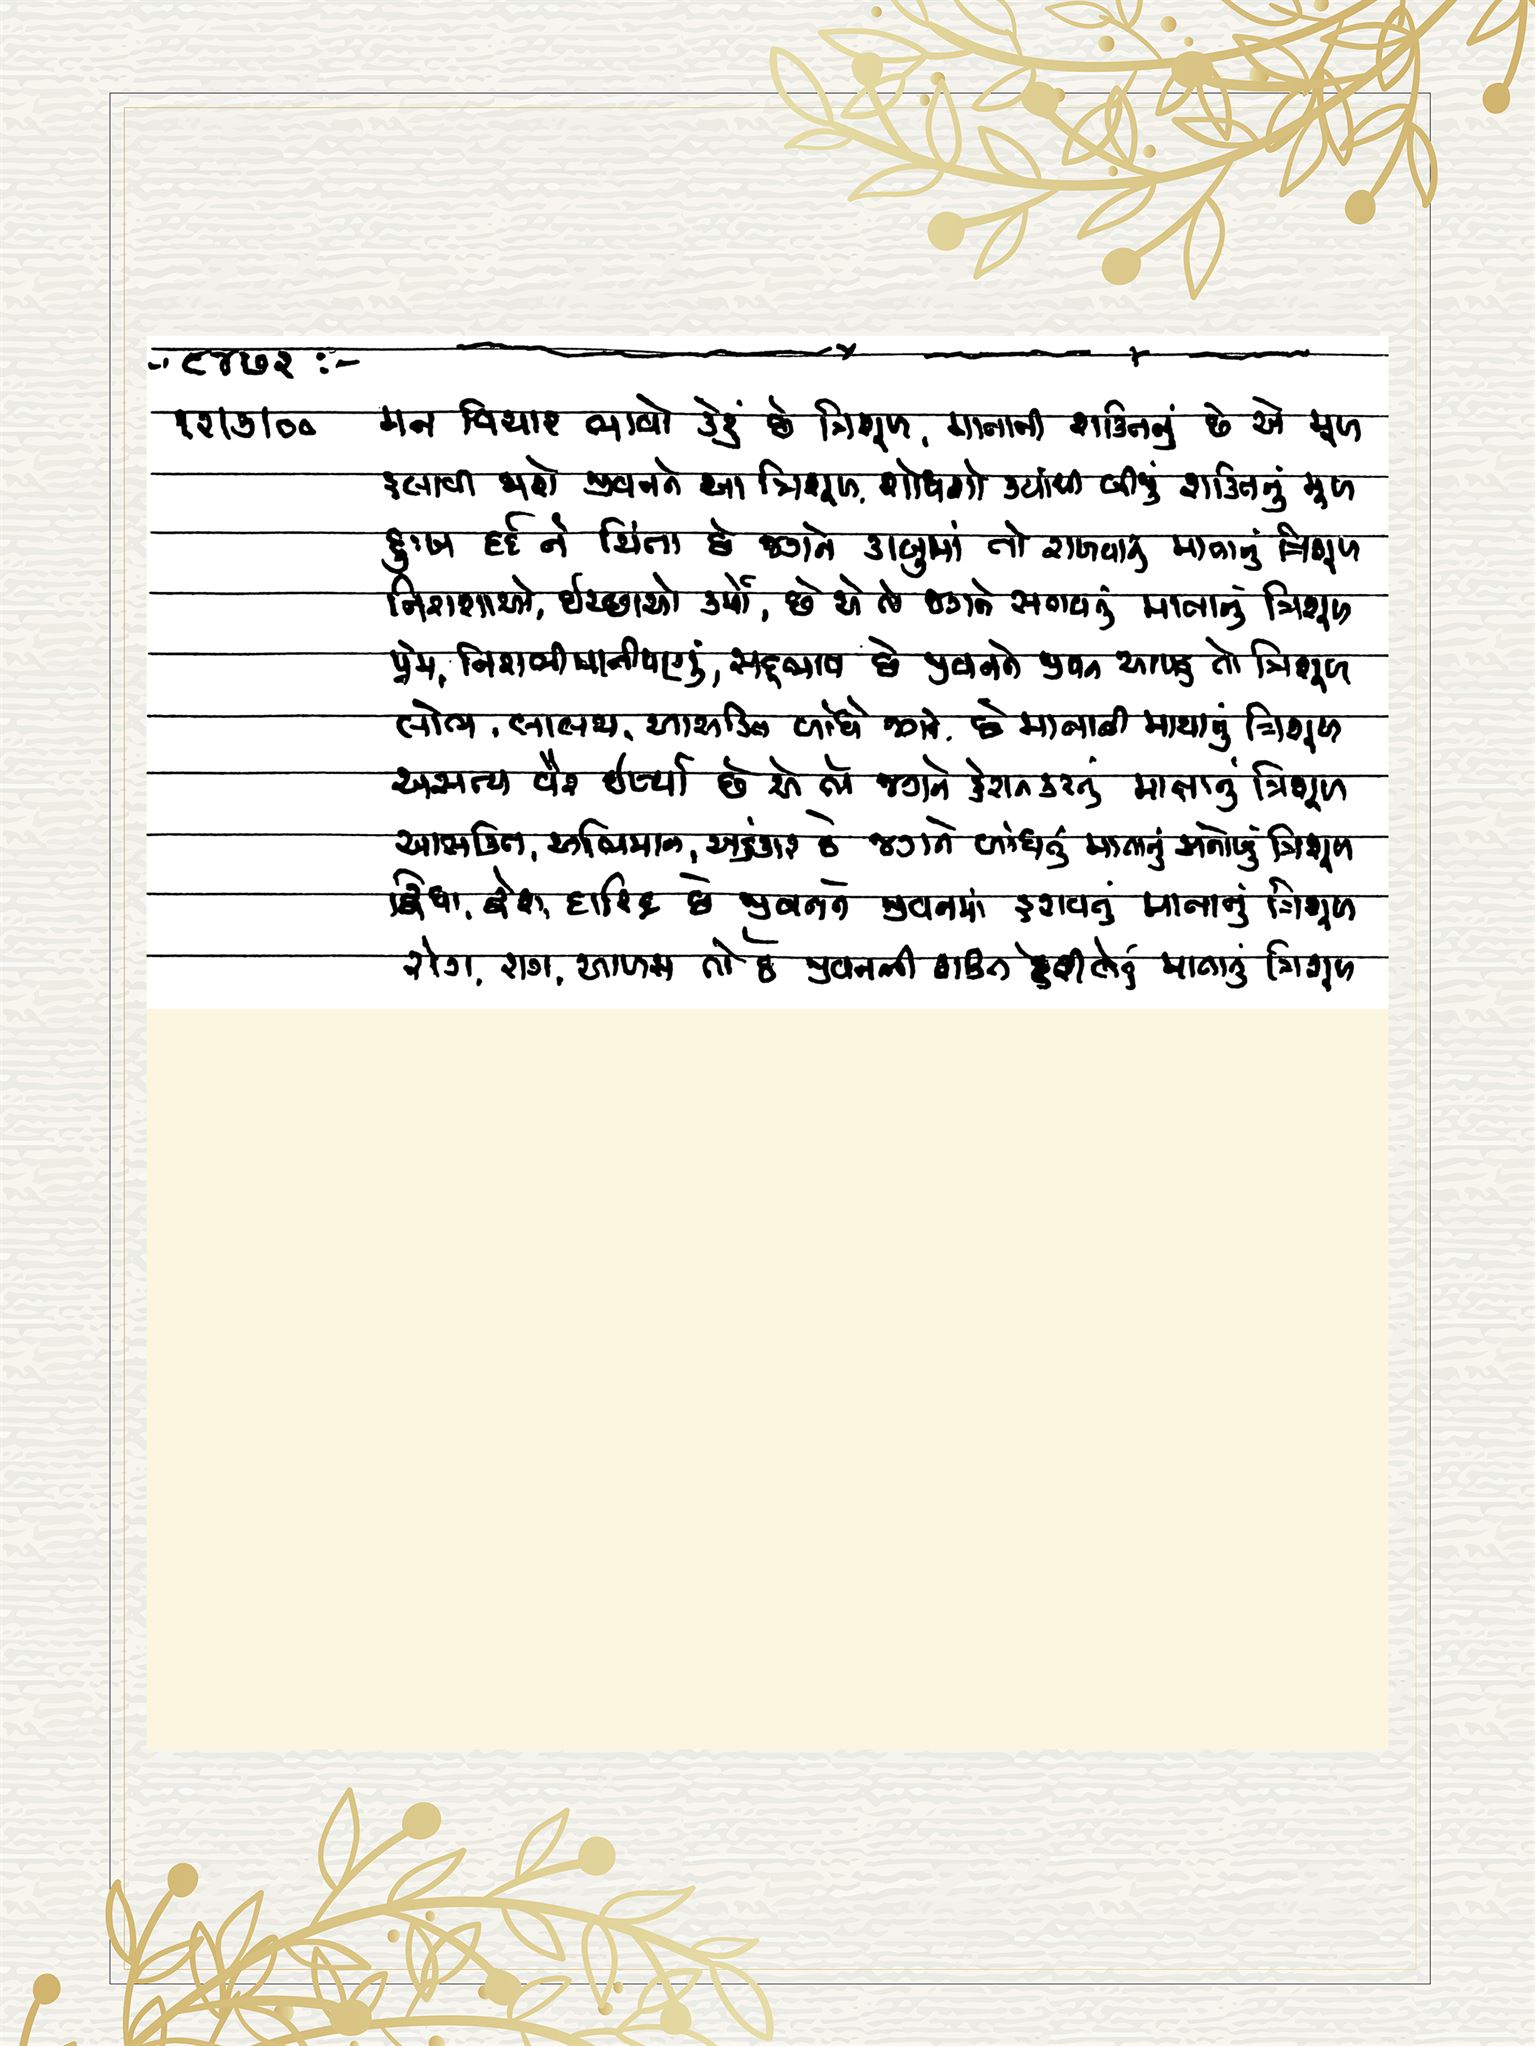 -: ૯૪૭૨ :-
૧૨/૭/૦૦ મન વિચાર ભાવો કેરું છે ત્રિશૂળ, માતાની શક્તિનું છે એ મૂળ
હલાવી જાશે જીવનને આ ત્રિશૂળ, શોધશો ક્યાંથી બીજું શક્તિનું મૂળ
દુઃખ દર્દ ને ચિંતા છે જગને કાબુમાં તો રાખવાનું માતાનું ત્રિશૂળ
નિરાશાઓ, ઈચ્છાઓ કર્મો, છે એ તો જગને સતાવતું માતાનું ત્રિશૂળ
પ્રેમ, નિરાભીમાનીપણું, સદ્ભાવ છે જીવનને જીવન આપતું તો ત્રિશૂળ
લોભ, લાલચ, આસક્તિ બાંધે જગને, છે માતાની માયાનું ત્રિશૂળ
અસત્ય વૈર ઈર્ષ્યા છે એ તો જગને હેરાન કરતું માતાનું ત્રિશૂળ
આસક્તિ, અભિમાન, અહંકાર છે જગને બાંધતું માતાનું અનોખું ત્રિશૂળ
દ્વિધા, દ્વેષ, દારિદ્ર છે જીવનને જીવનમાં હરાવતું માતાનું ત્રિશૂળ
રોગ, રાગ, આળસ તો છે જીવનની શક્તિ હરી લેતું માતાનું ત્રિશૂળ